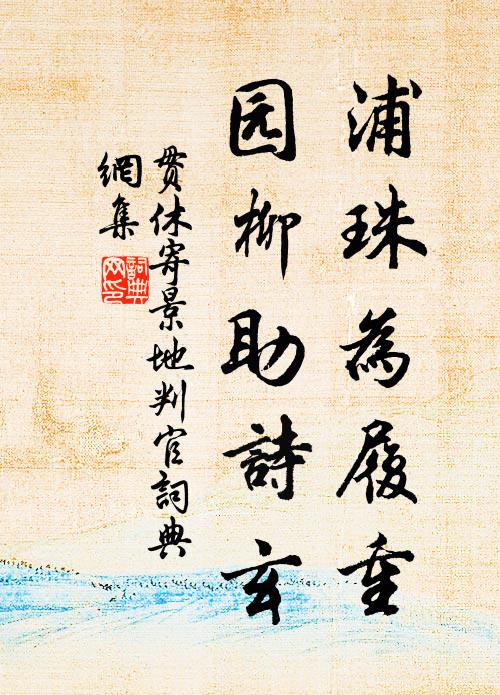 浦珠為履重
园柳助詩玄
贯休寄景地判官詞典
網集
詞典网印